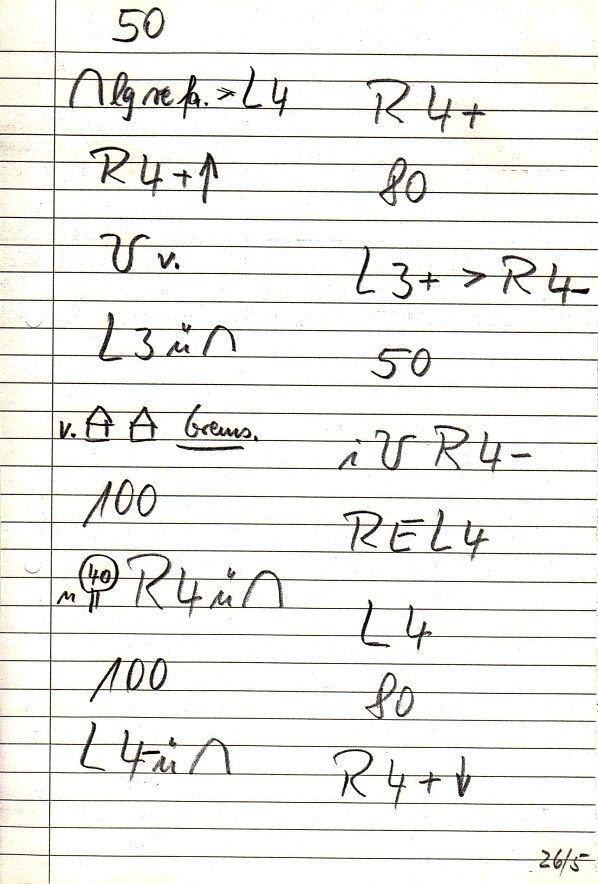 50
∩ lg > L4
R4+↑
v.
L3 ü ∩
v. brems.
100
40 R4 ü ∩
100
L4- ü ∩
R4+
80
L3+ > R4-
50
i R4-
REL4
L4
80
R4+↓
26/5